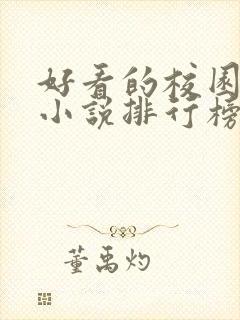 好看的校园
小说排行榜
董禹灼